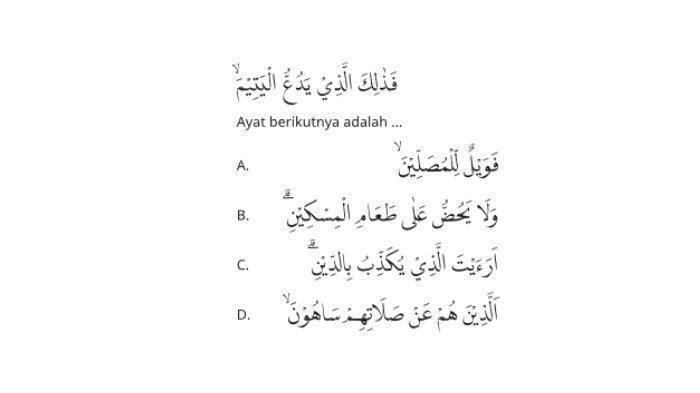 فَذٰلِكَ الَّذِيْ يَدُعُّ الْيَتِيْمَۙ
Ayat berikutnya adalah ...
A. فَوَيْلٌ لِّلْمُصَلِّيْنَۙ
B. وَلَا يَحُضُّ عَلٰى طَعَامِ الْمِسْكِيْنِۗ
C. اَرَءَيْتَ الَّذِيْ يُكَذِّبُ بِالدِّيْنِۗ
D. الَّذِيْنَ هُمْ عَنْ صَلَاتِهِمْ سَاهُوْنَۙ